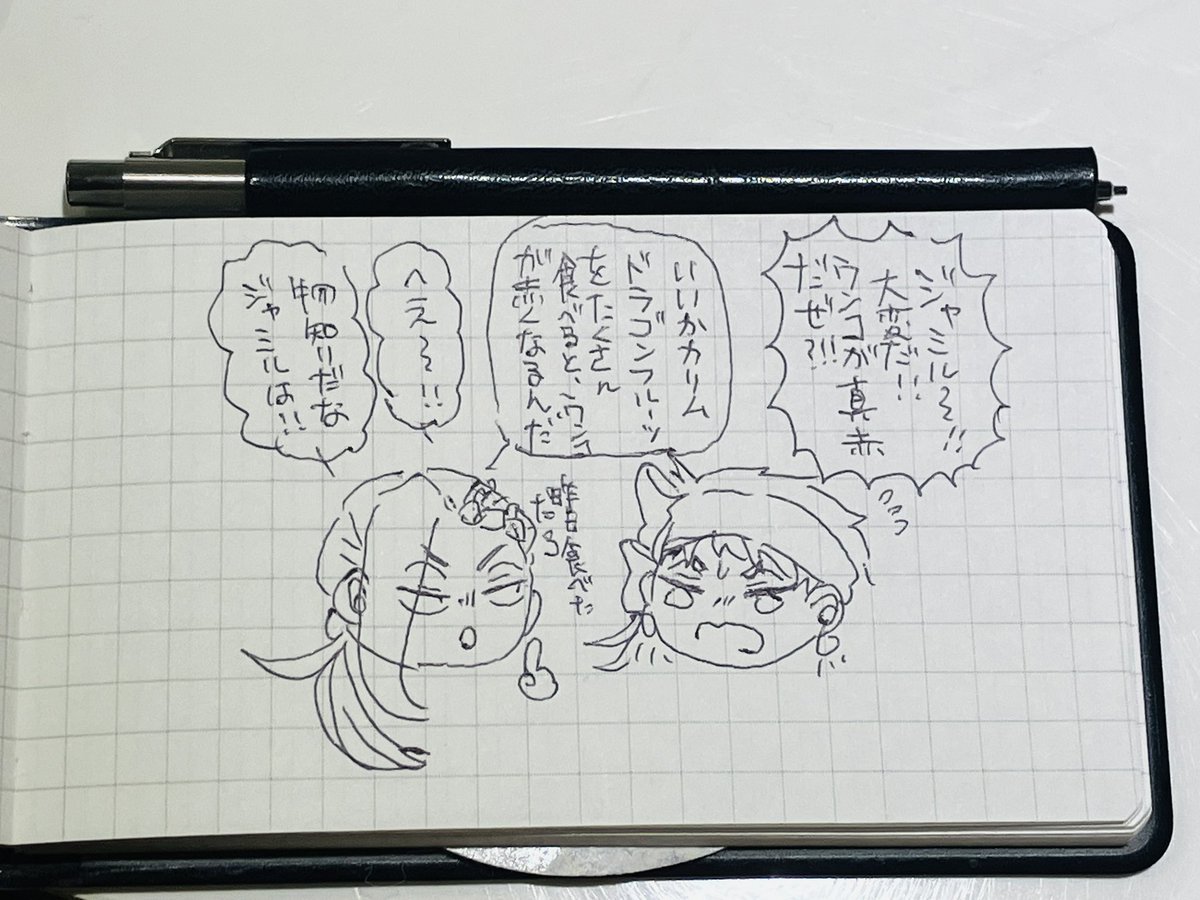 ジャミル〜!!
大変だ!!
ウンコが真赤
だぜ?!!
いいかカリム
ドラゴンフルーツ
をたくさん
食べると、ウンコ
が赤くなるんだ
昨日食べた
だろ
へえ〜!!
物知りだな
ジャミルは!!